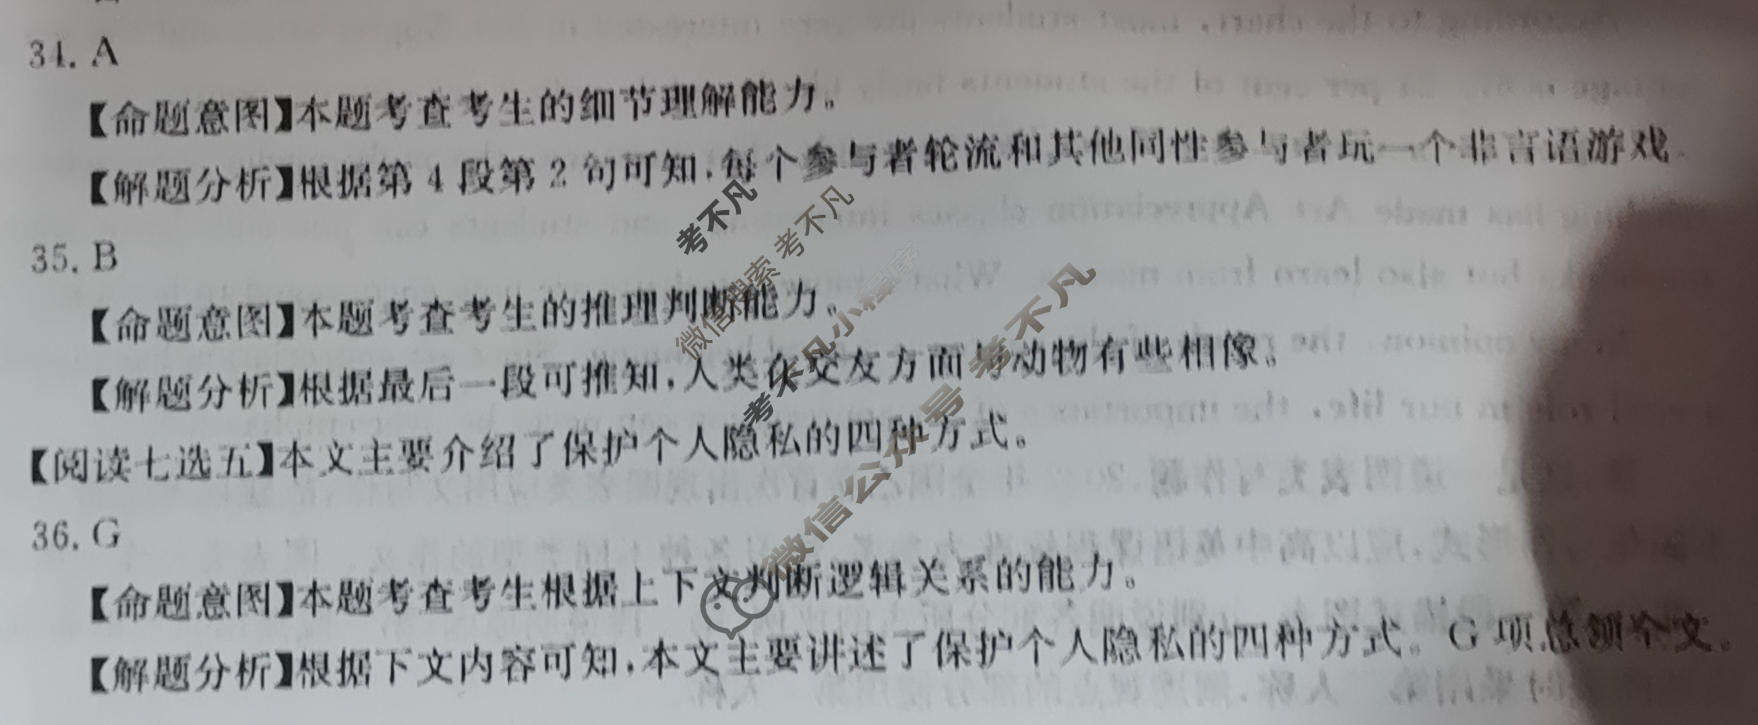 34. A
【命题意图】本题考查考生的细节理解能力。
【解题分析】根据第 4 段第 2 句可知,每个参与者轮流和其他同性参与者玩一个非言语游戏
35. B
【命题意图】本题考查考生的推理判断能力。
【解题分析】根据最后一段可推知,人类在交友方面与动物有些相像。
【阅读七选五】本文主要介绍了保护个人隐私的四种方式。
36. G
【命题意图】本题考查考生根据上下文判断逻辑关系的能力。
【解题分析】根据下文内容可知,本文主要讲述了保护个人隐私的四种方式。G 项总领全文。
考不凡
微信搜索 考不凡
考不凡小程序
微信公众号 考不凡